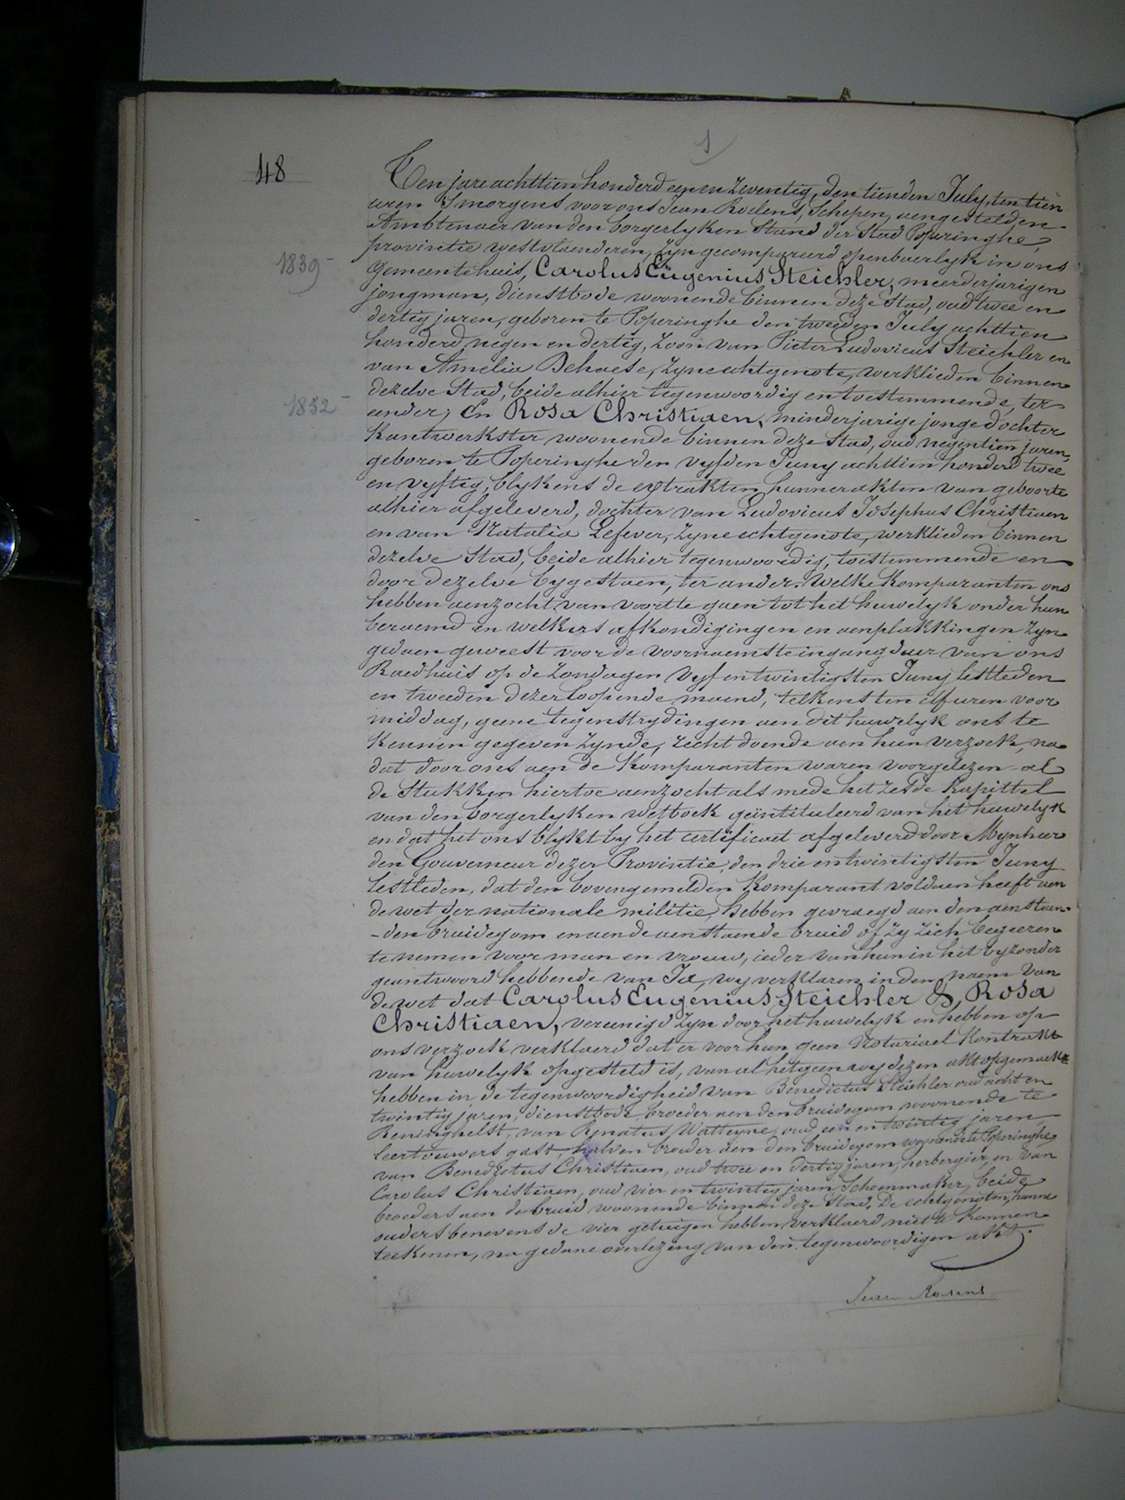 1
48
Ten jare achttien honderd een en zeventig, den tienden July, ten tien
uren S'morgens voor ons Jean Roelens, Schepen, aengestelden
Ambtenaer van den borgerlyken Stand der Stad Poperinghe
provintie westvlaenderen, Zyn gecompareerd openbaerlyk in ons
1839
Gemeentehuis, Carolus Eugenius Steichler, meerderjarigen
jongman, dienstbode woonende binnen deze Stad, oud twee en
dertig jaren, geboren te Poperinghe den tweeden July achttien
honderd negen en dertig, Zoon van Pieter Ludovicus Steichler en
van Amelia Dehaese, Zyne echtgenote, werklieden binnen
dezelve Stad, beide alhier tegenwoordig en toestemmende, ter
1852
eender; En Rosa Christiaen, minderjarige jonge dochter
Kantwerkster, woonende binnen deze Stad, oud negentien jaren,
geboren te Poperinghe den vyfden Juny achttien honderd twee
en vyftig, blykens de extrakten hunner akten van geboorte
alhier afgeleverd, dochter van Ludovicus Josephus Christiaen
en van Natalia Lefever, Zyne echtgenote, werklieden binnen
dezelve Stad, beide alhier tegenwoordig, toestemmende en
door dezelve bygestaen, ter ander; Welke Komparanten ons
hebben aenzocht van voort te gaen tot het huwelyk onder hun
beraemd en welkers afkondigingen en aenplakkingen Zyn
gedaen geweest voor de voornaemste ingangdeur van ons
Raedhuis op de Zondagen vyf en twintigsten Juny lestleden
en tweeden dezer loopende maend, telkens ten elf uren voor
middag, geene tegenstrydingen aen dit huwelyk ons te
Kennen gegeven Zynde, recht doende aen hun verzoek, na
dat door ons aen de Komparanten waren voorgelezen al
de Stukken hiertoe aenzocht als mede het Zesde Kapittel
van den borgerlyken wetboek geïntituleerd van het huwelyk
en dat het ons blykt by het certificaet afgeleverd door Mynheer
den Gouverneur dezer Provintie, den drie en twintigsten Juny
lestleden, dat den bovengemelden Komparant voldaen heeft aen
de wet der nationale militie, hebben gevraegd aen den aenstaen-
-den bruidegom en aen de aenstaende bruid of Zy Zich begeeren
te nemen voor man en vrouw, ieder van hun in het byzonder
geantwoord hebbende van Ja, wy verklaren in den naem van
de wet dat Carolus Eugenius Steichler & Rosa
Christiaen, vereenigd Zyn door het huwelyk en hebben op
ons verzoek verklaerd dat er voor hun geen Notariael Kontrakt
van huwelyk opgesteld is, van al hetgeen wy dezen akt opgemaekt
hebben in de tegenwoordigheid van Benedictus Steichler oud acht en
twintig jaren, dienstbode, broeder aen den bruidegom woonende te
Reninghelst, van Renatus Watteyne, oud een en twintig jaren
leertouwers gast, halven broeder aen den bruidegom woonende te Poperinghe
van Benedictus Christiaen, oud twee en dertig jaren, herbergier, en van
Carolus Christiaen, oud vier en twintig jaren Schoenmaker, beide
broeders aen de bruid, woonende binnen deze Stad, De echtgenoten, hunne
ouders benevens de vier getuigen hebben verklaerd niet te Konnen
teekenen, na gedane overlezing van den tegenwoordigen akt.
Jean Roelens